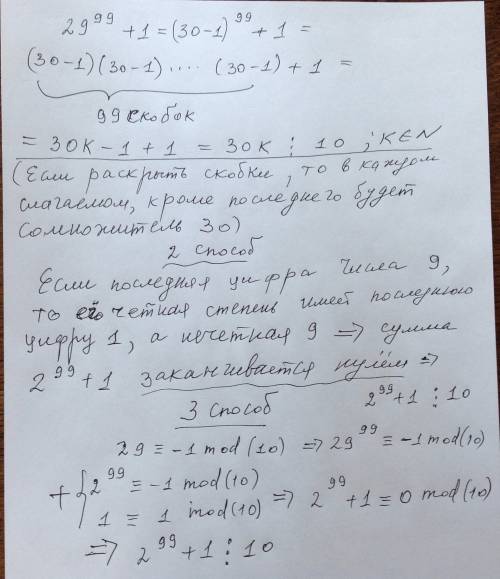 29^99 + 1 = (30-1)^99 + 1 =
(30-1)(30-1) .... (30-1) + 1 =
99 скобок
= 30K - 1 + 1 = 30K ⋮ 10 ; K∈N
(Если раскрыть скобки, то в каждом
слагаемом, кроме последнего будет
сомножитель 30)
2 способ
Если последняя цифра числа 9,
то его четная степень имеет последнюю
цифру 1, а нечетная 9 => сумма
2^99 + 1 заканчивается нулём =>
2^99 + 1 ⋮ 10
3 способ
29 ≡ -1 mod (10) => 29^99 ≡ -1 mod(10)
+ { 2^99 ≡ -1 mod(10)
1 ≡ 1 mod(10) => 2^99 + 1 ≡ 0 mod(10)
=> 2^99 + 1 ⋮ 10